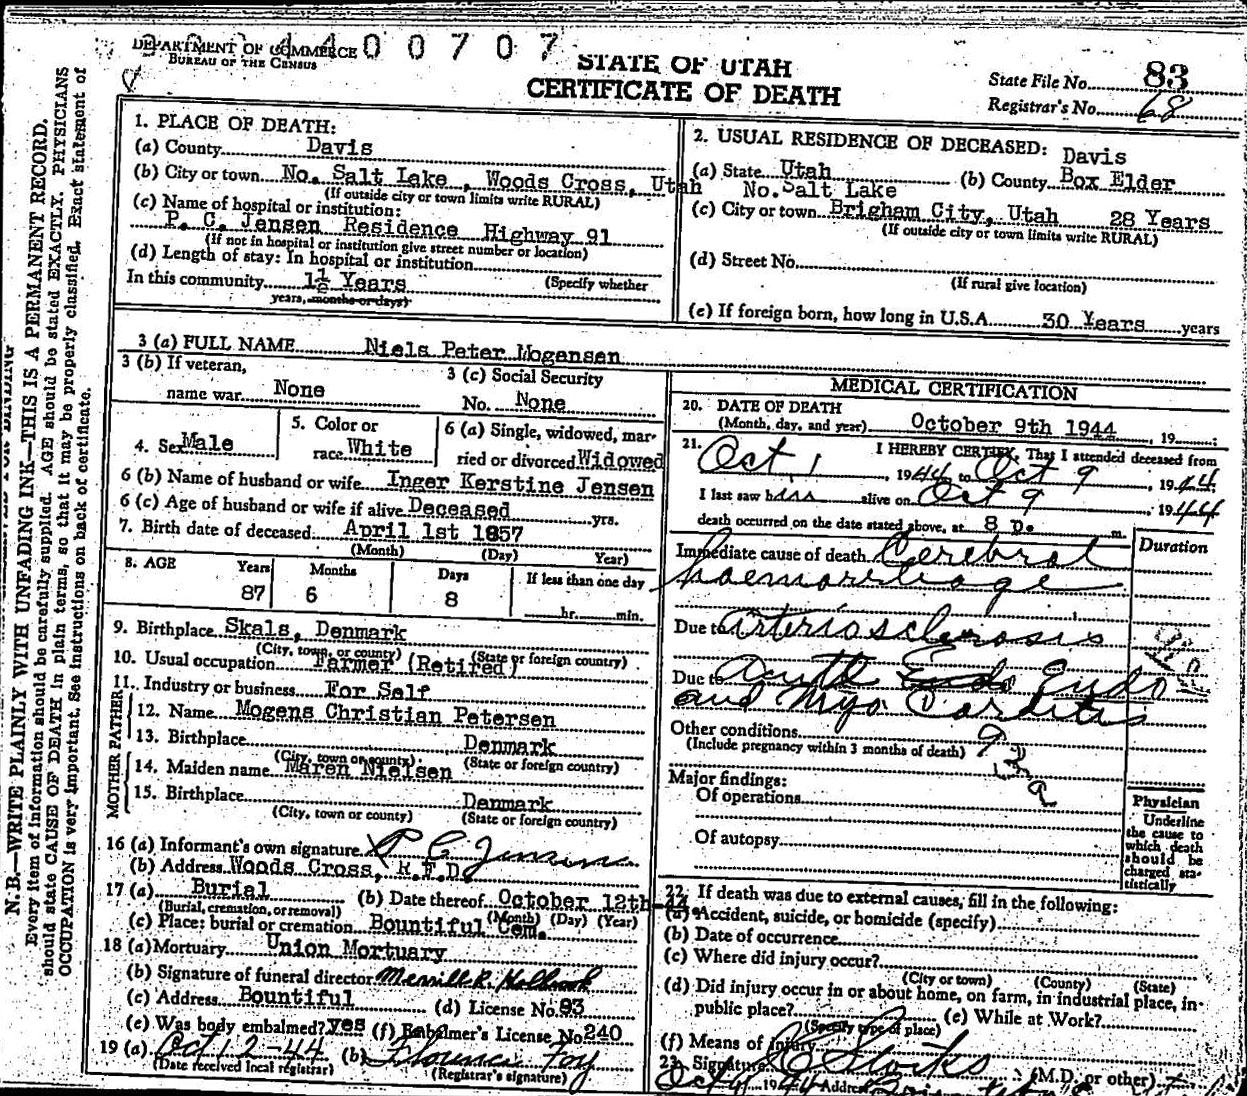 DEPARTMENT OF COMMERCE
BUREAU OF THE CENSUS
4400707
STATE OF UTAH
CERTIFICATE OF DEATH
State File No. 83
Registrar's No. 68
N. B.—WRITE PLAINLY WITH UNFADING INK—THIS IS A PERMANENT RECORD.
Every item of information should be carefully supplied. AGE should be stated EXACTLY. PHYSICIANS
should state CAUSE OF DEATH in plain terms, so that it may be properly classified. Exact statement of
OCCUPATION is very important. See instructions on back of certificate.
1. PLACE OF DEATH:
(a) County Davis
(b) City or town No. Salt Lake, Woods Cross, Utah
(If outside city or town limits write RURAL)
(c) Name of hospital or institution:
P. C. Jensen Residence Highway 91
(If not in hospital or institution give street number or location)
(d) Length of stay: In hospital or institution
(Specify whether
In this community 1½ Years
years, months or days)
2. USUAL RESIDENCE OF DECEASED:
Davis
(a) State Utah (b) County Box Elder
No. Salt Lake
(c) City or town Brigham City, Utah 28 Years
(If outside city or town limits write RURAL)
(d) Street No.
(If rural give location)
(e) If foreign born, how long in U.S.A. 30 Years years
3 (a) FULL NAME Niels Peter Mogensen
3 (b) If veteran,
name war None
3 (c) Social Security
No. None
4. Sex Male
5. Color or
race White
6 (a) Single, widowed, mar-
ried or divorced Widowed
6 (b) Name of husband or wife Inger Kerstine Jensen
6 (c) Age of husband or wife if alive Deceased yrs.
7. Birth date of deceased April 1st 1857
(Month) (Day) Year)
8. AGE Years Months Days If less than one day
87 6 8 hr. min.
9. Birthplace Skals, Denmark
(City, town, or county) (State or foreign country)
10. Usual occupation Farmer (Retired)
11. Industry or business For Self
FATHER
12. Name Mogens Christian Petersen
13. Birthplace Denmark
(City, town or county) (State or foreign country)
MOTHER
14. Maiden name Maren Nielsen
15. Birthplace Denmark
(City, town or county) (State or foreign country)
16 (a) Informant's own signature P C Jensen
(b) Address Woods Cross, R.F.D.
17 (a) Burial (b) Date thereof October 12th-44
(Burial, cremation, or removal) (Month) (Day) (Year)
(c) Place: burial or cremation Bountiful Cem.
18 (a) Mortuary Union Mortuary
(b) Signature of funeral director Merrill R. Holbrook
(c) Address Bountiful (d) License No. 83
(e) Was body embalmed? yes (f) Embalmer's License No. 240
19 (a) Oct 12-44 (b) Florence Foy
(Date received local registrar) (Registrar's signature)
MEDICAL CERTIFICATION
20. DATE OF DEATH
(Month, day, and year) October 9th 1944, 19
21. I HEREBY CERTIFY, That I attended deceased from
Oct 1, 1944 to Oct 9, 1944
I last saw him alive on Oct 9, 1944
death occurred on the date stated above, at 8 p. m.
Duration
Immediate cause of death Cerebral
haemorrhage
Due to Arteriosclerosis
Due to Acute Endo Endo
and Myo Carditis
Other conditions
(Include pregnancy within 3 months of death)
Major findings:
Of operations
Of autopsy
Physician
Underline
the cause to
which death
should be
charged sta-
tistically
22. If death was due to external causes, fill in the following:
(a) Accident, suicide, or homicide (specify)
(b) Date of occurrence
(c) Where did injury occur?
(City or town) (County) (State)
(d) Did injury occur in or about home, on farm, in industrial place, in
public place? (e) While at Work?
(Specify type of place)
(f) Means of Injury
23. Signature (M.D. or other)
1944 Address